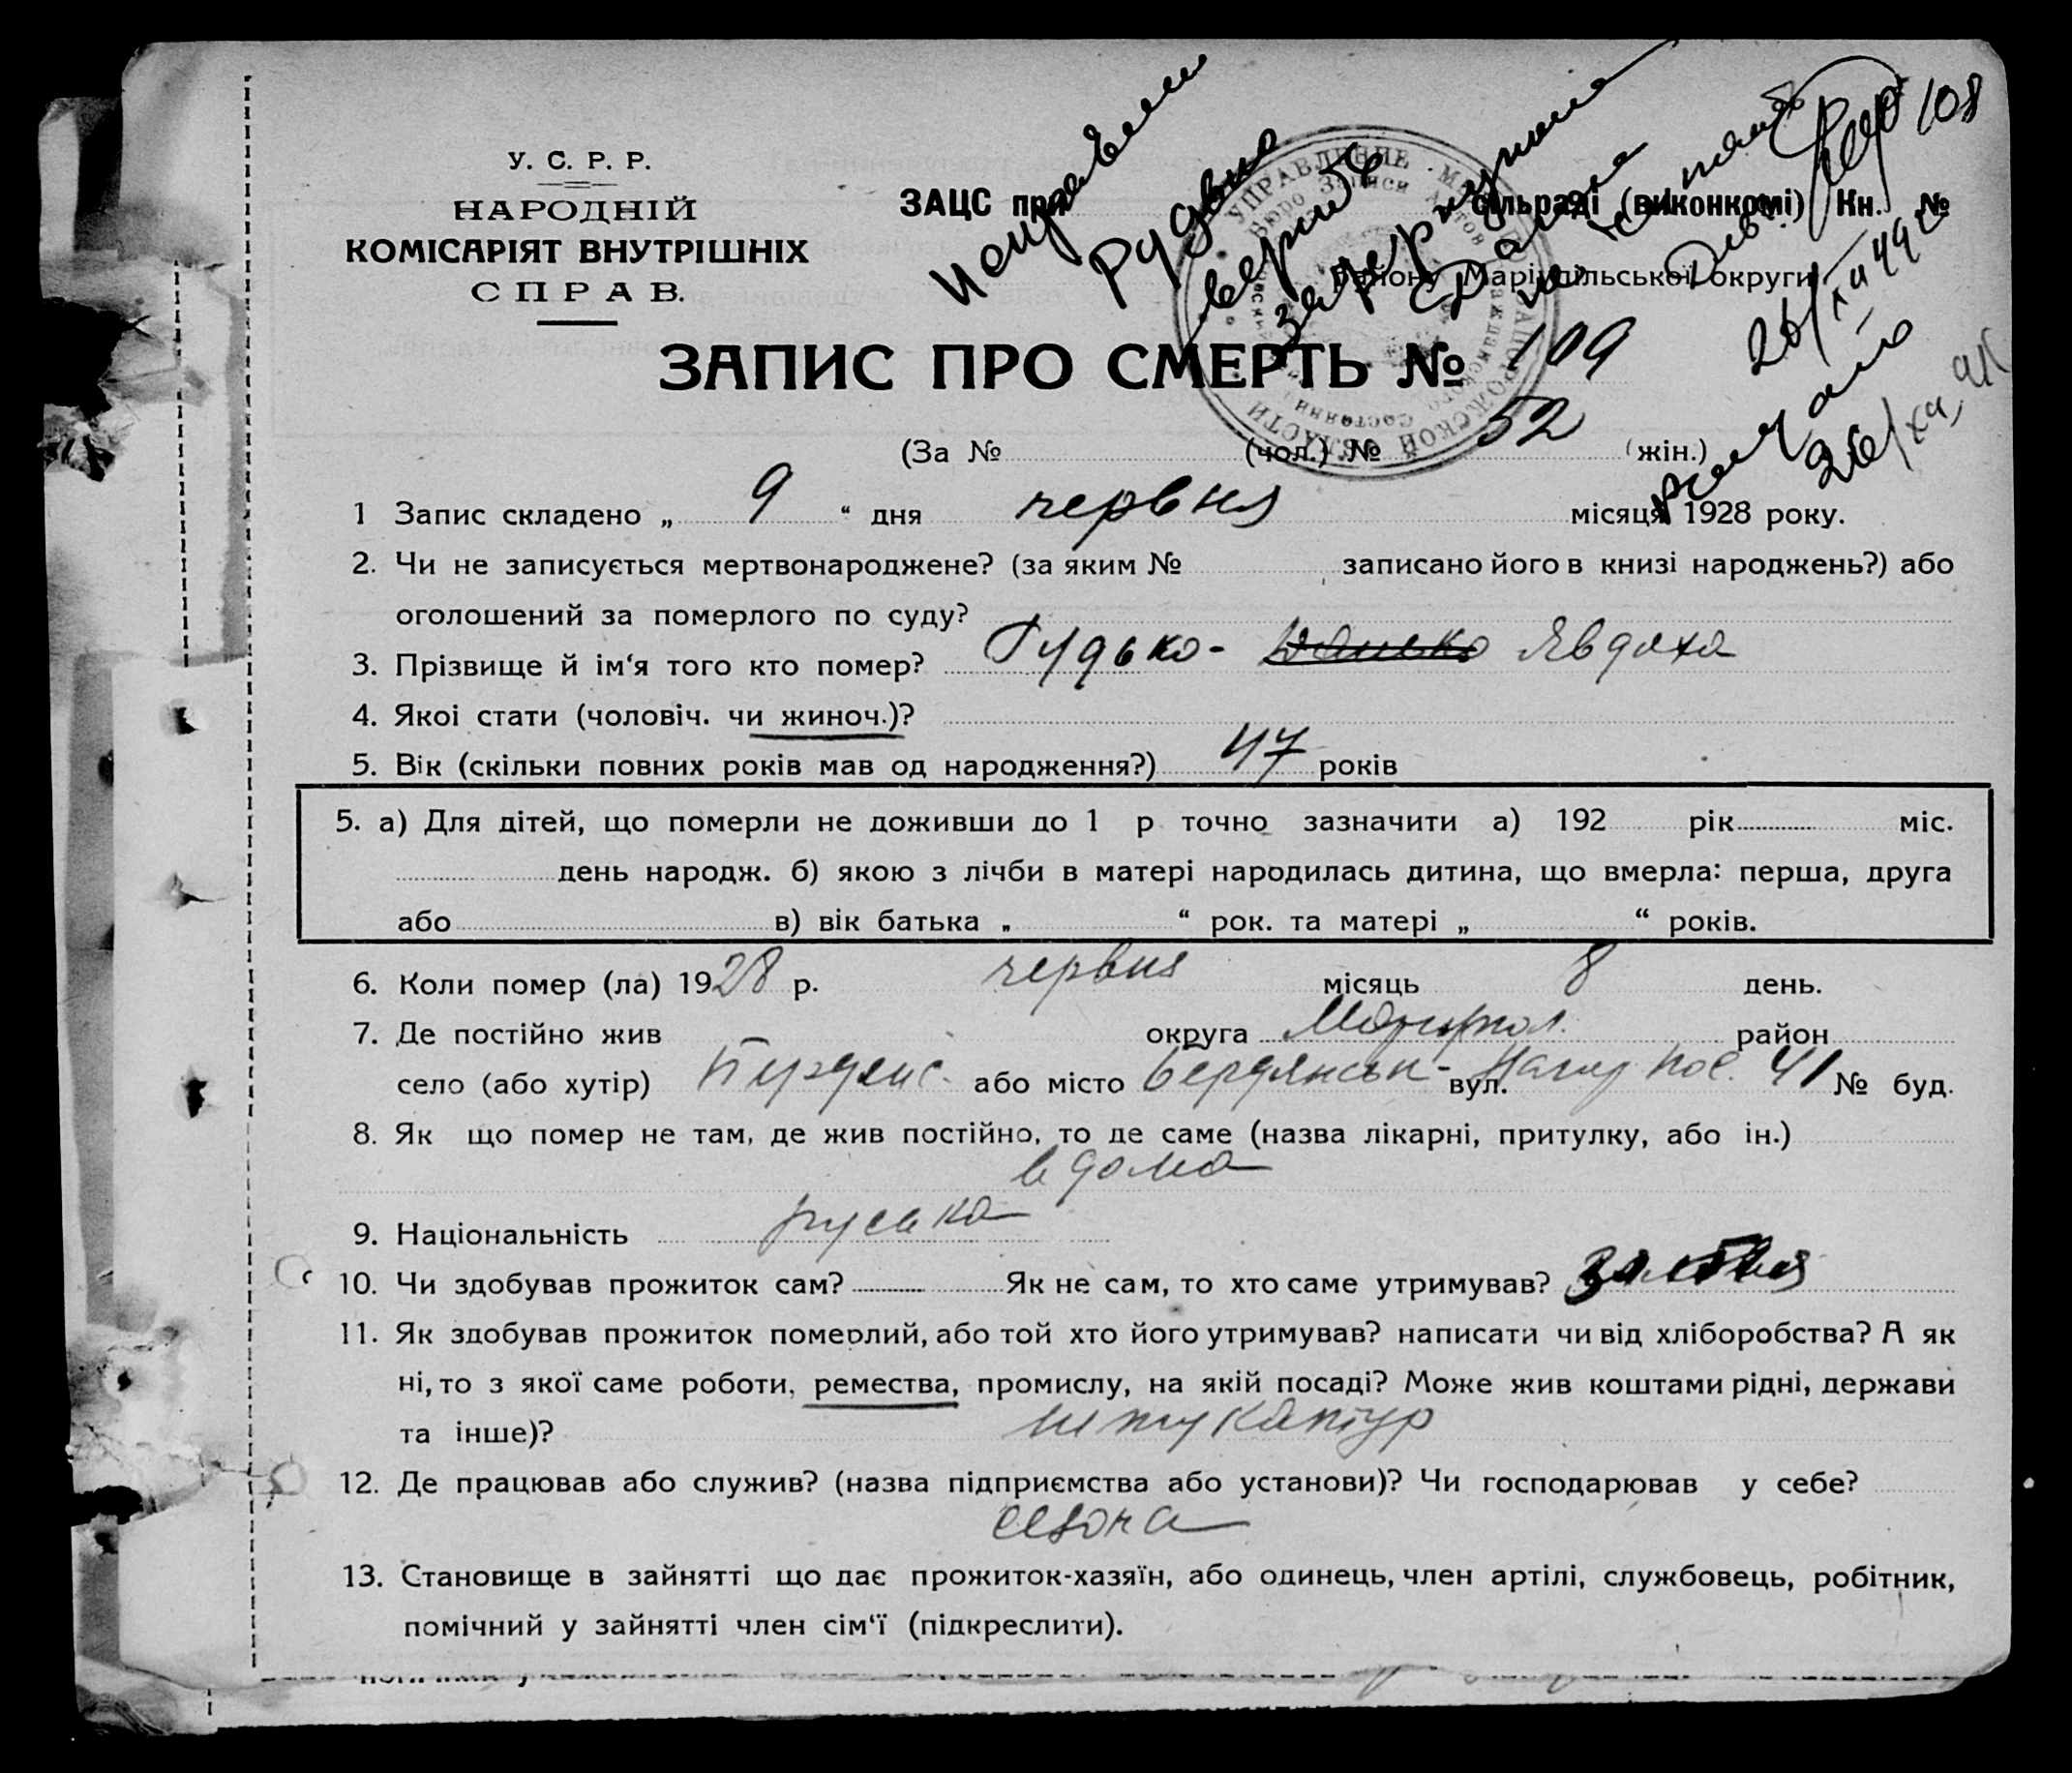 108
У. С. Р. Р.
НАРОДНІЙ
КОМІСАРІЯТ ВНУТРІШНІХ
СПРАВ.
ЗАЦС при сільраді (виконкомі) Кн. №
району Маріюпільської округи
Рудько
верить
зачеркнутые
26/XII 49
26/XII
УПРАВЛЕНИЕ ЗАПОРОЖСКОЙ ОБЛАСТИ
Бюро Записи Актов Гражданского Состояния
ЗАПИС ПРО СМЕРТЬ № 109
(За № (чол.) № 52 (жін.)
1 Запис складено „ 9 “ дня червня місяця 1928 року.
2. Чи не записується мертвонароджене? (за яким № записано його в книзі народжень?) або
оголошений за померлого по суду?
3. Прізвище й ім‘я того кто помер? Рудько- Явдоха
4. Якоі стати (чоловіч. чи жиноч.)?
5. Вік (скільки повних років мав од народження?) 47 років
5. а) Для дітей, що померли не доживши до 1 р точно зазначити а) 192 рік міс.
день народж. б) якою з лічби в матері народилась дитина, що вмерла: перша, друга
або в) вік батька „ “ рок. та матері „ “ років.
6. Коли помер (ла) 1928 р. червня місяць 8 день.
7. Де постійно жив округа Маріупол. район
село (або хутір) або місто Бердянськ- вул. 41 № буд.
8. Як що помер не там, де жив постійно, то де саме (назва лікарні, притулку, або ін.)
в дома
9. Національність руська
10. Чи здобував прожиток сам? Як не сам, то хто саме утримував?
11. Як здобував прожиток померлий, або той хто його утримував? написати чи від хліборобства? А як
ні, то з якої саме роботи, ремества, промислу, на якій посаді? Може жив коштами рідні, держави
та інше)? штукатур
12. Де працював або служив? (назва підприємства або установи)? Чи господарював у себе?
13. Становище в зайнятті що дає прожиток-хазяїн, або одинець, член артілі, службовець, робітник,
помічний у зайнятті член сім‘ї (підкреслити).